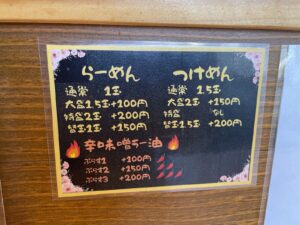 らーめん
通常 1玉
大盛1.5玉+100円
特盛2玉 +200円
替玉1玉 +150円
つけめん
通常 1.5玉
大盛2玉 +150円
特盛 なし
替玉1.5玉 +200円
辛味噌ラー油
ぷらす1 +100円
ぷらす2 +150円
ぷらす3 +200円